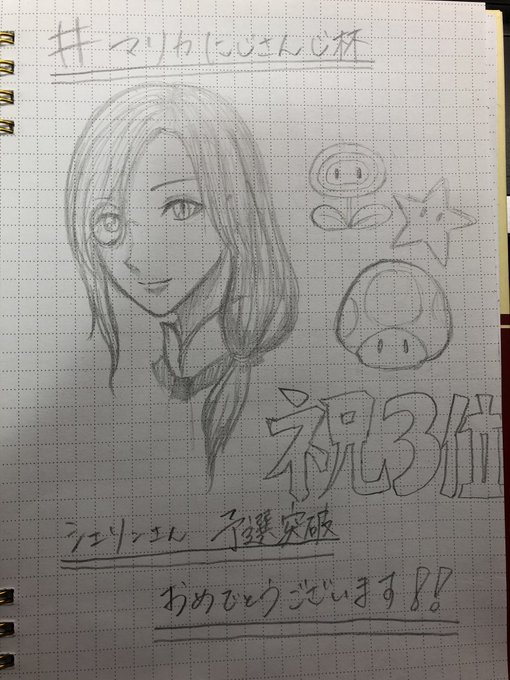 #マリカにじさんじ杯
祝3位
シェリンさん 予選突破
おめでとうございます!!